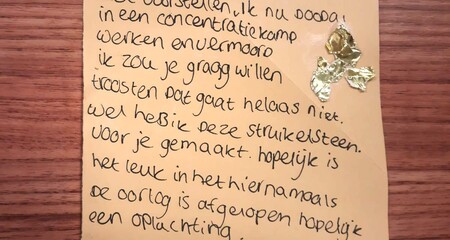 voorstellen, ik nu
in een concentratiekamp
werken en vermoord
ik zou je graag willen
troosten dat gaat helaas niet.
wel heb ik deze struikelsteen.
voor je gemaakt. hopelijk is
het leuk in het hiernamaals
de oorlog is afgelopen hopelijk
een opluchting.